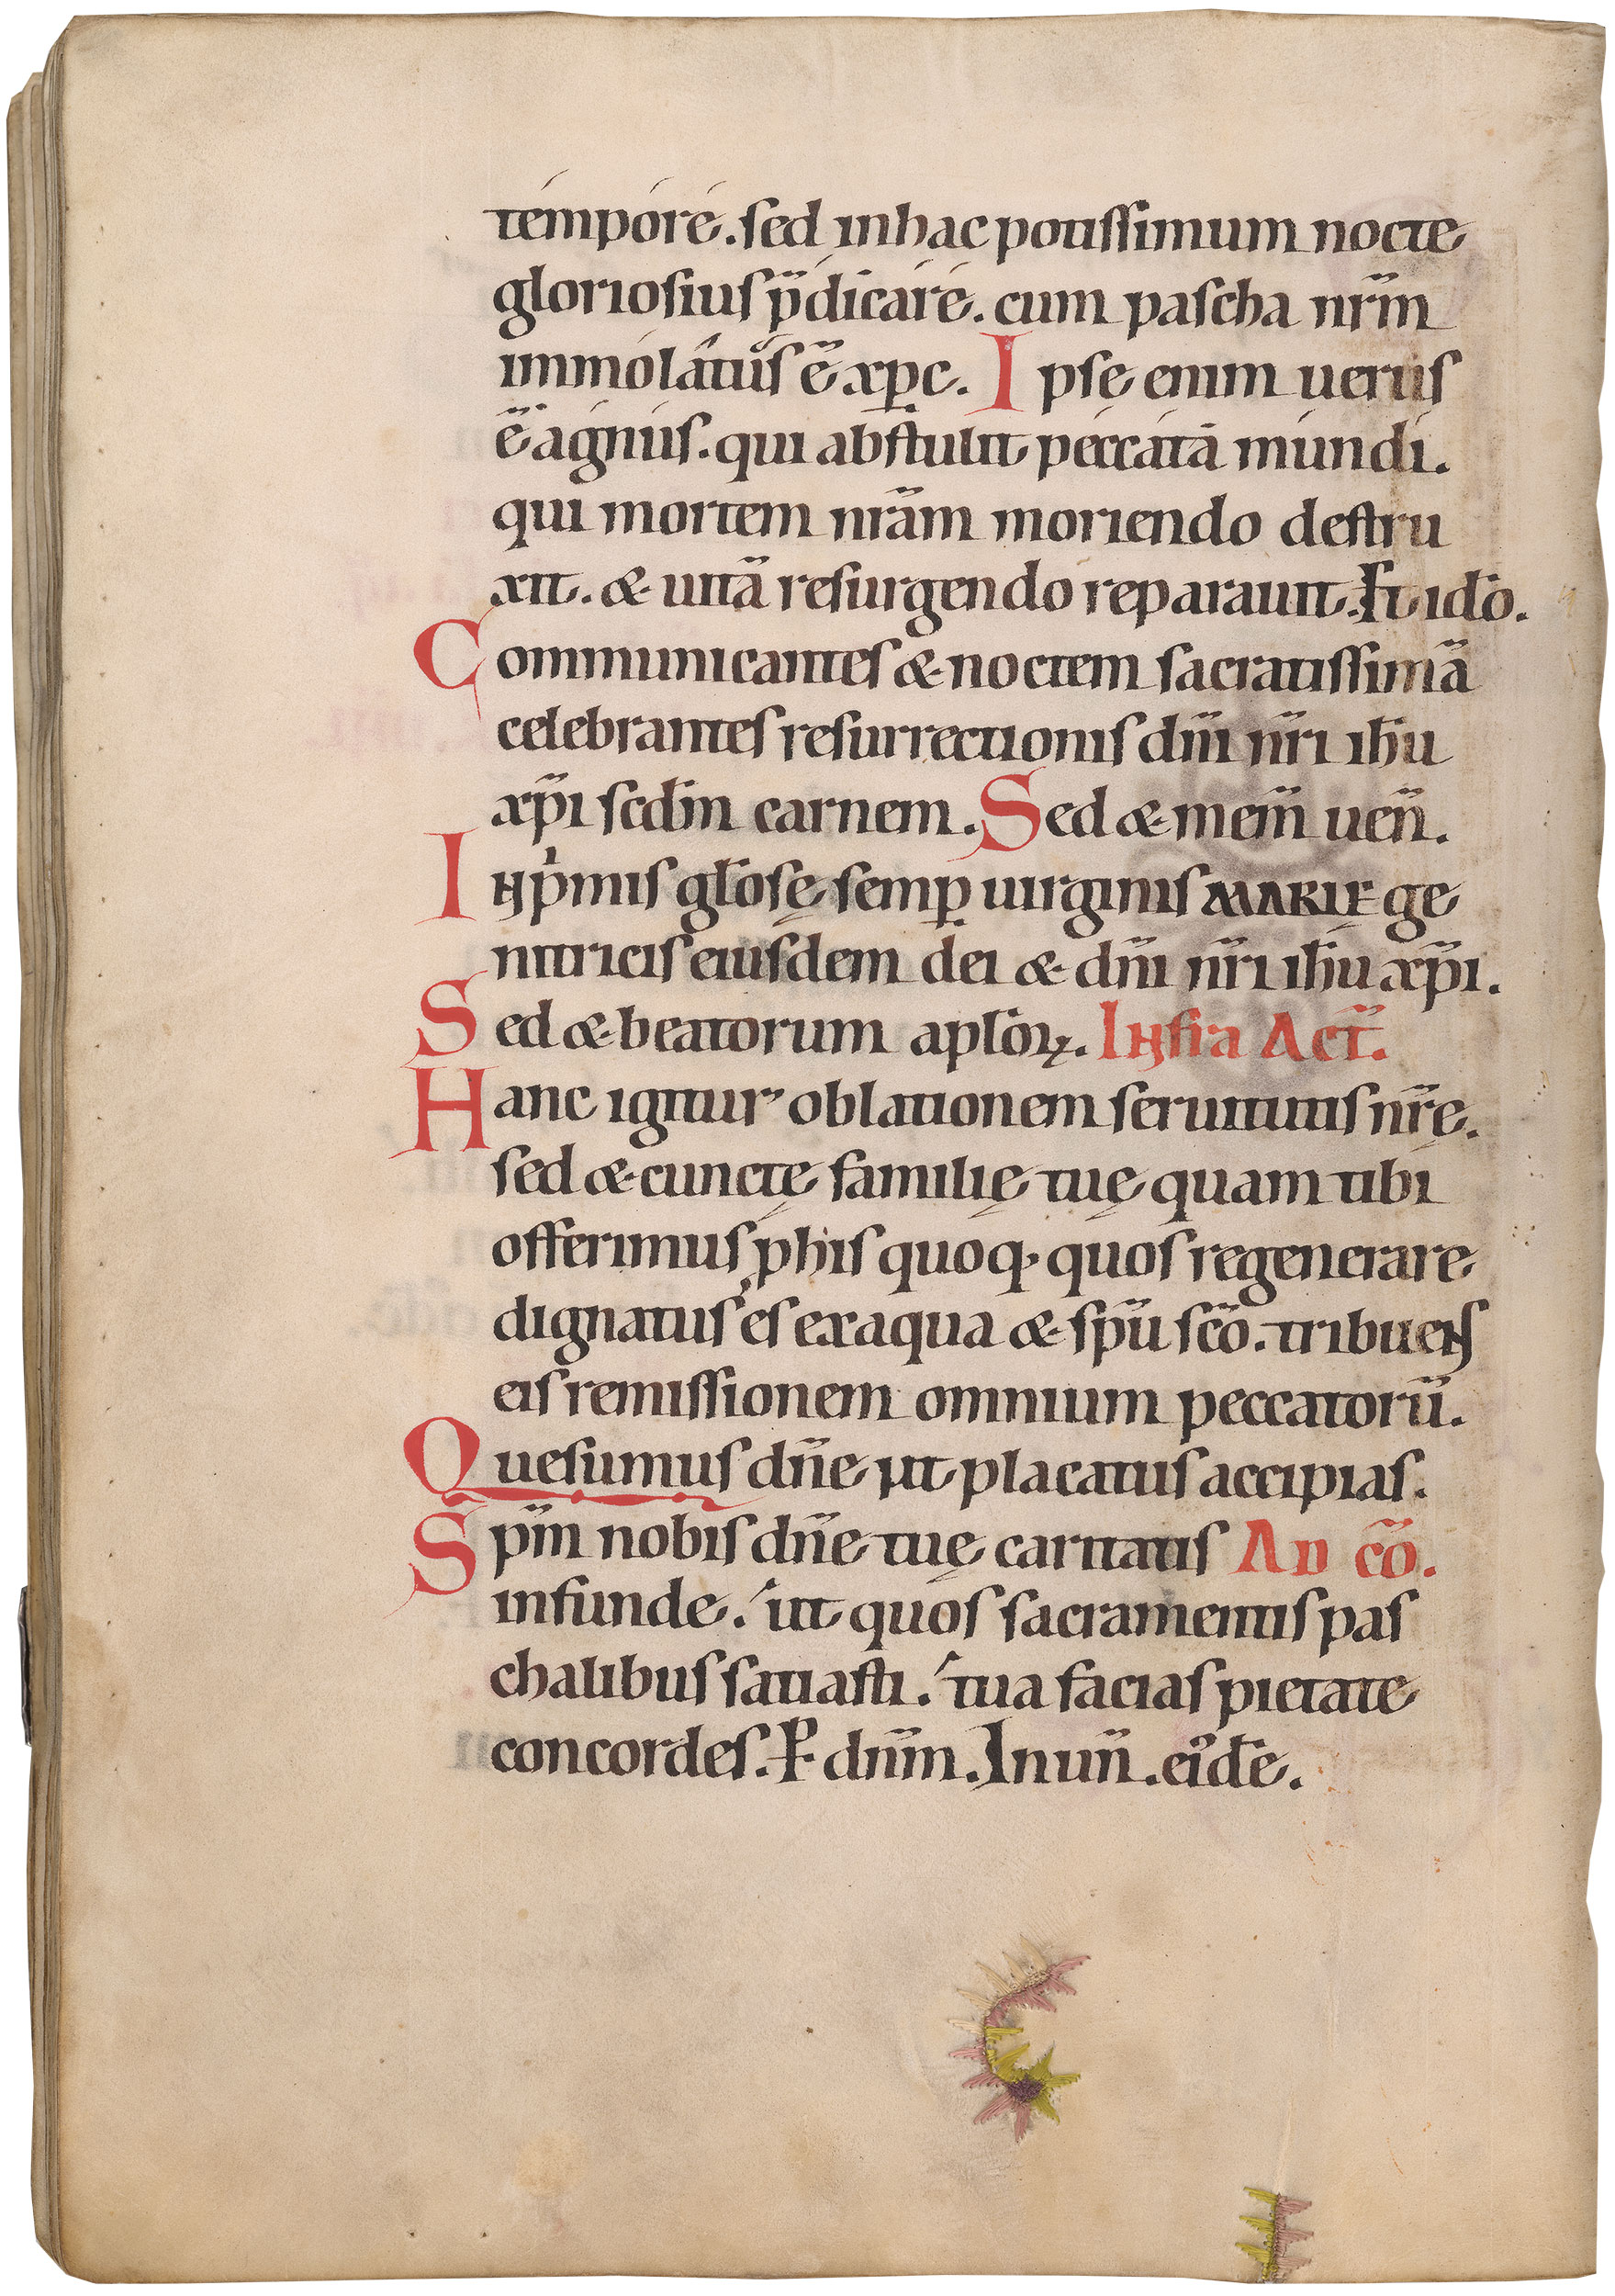 tempore. sed inhac potissimum nocte
gloriosius p̄dicare. cum pascha nr̄m
immolatus ē xp̄c. Ipse enim uerus
ē agnus. qui abstulit peccata mundi.
qui mortem nr̄am moriendo destru
xit. & uitā resurgendo reparauit. Et idō.
Communicantes & noctem sacratissimā
celebrantes resurrectionis dn̄i nr̄i ih̄u
xp̄i scdm̄ carnem. Sed & mem̄ uen̄.
Inp̍mis glōsę semp̱ uirginis MARIĘ ge
nitricis eiusdem dei & dn̄i nr̄i ih̄u xp̄i.
Sed & beatorum aplōꝝ. Infra Act̄.
Hanc igitur oblationem seruitutis nr̄ę.
sed & cunctę familię tuę quam tibi
offerimus ꝓ his quoq; quos regenerare
dignatus es exaqua & sp̄u sc̄o. tribuens
eis remissionem omnium peccatorū.
Quesumus dn̄e ut placatus accipias.
Sp̄m nobis dn̄e tuę caritatis AD cō.
infunde. ut quos sacramentis pas
chalibus satiasti. tua facias pietate
concordes. P. dn̄m. Inun̄. eiđe.